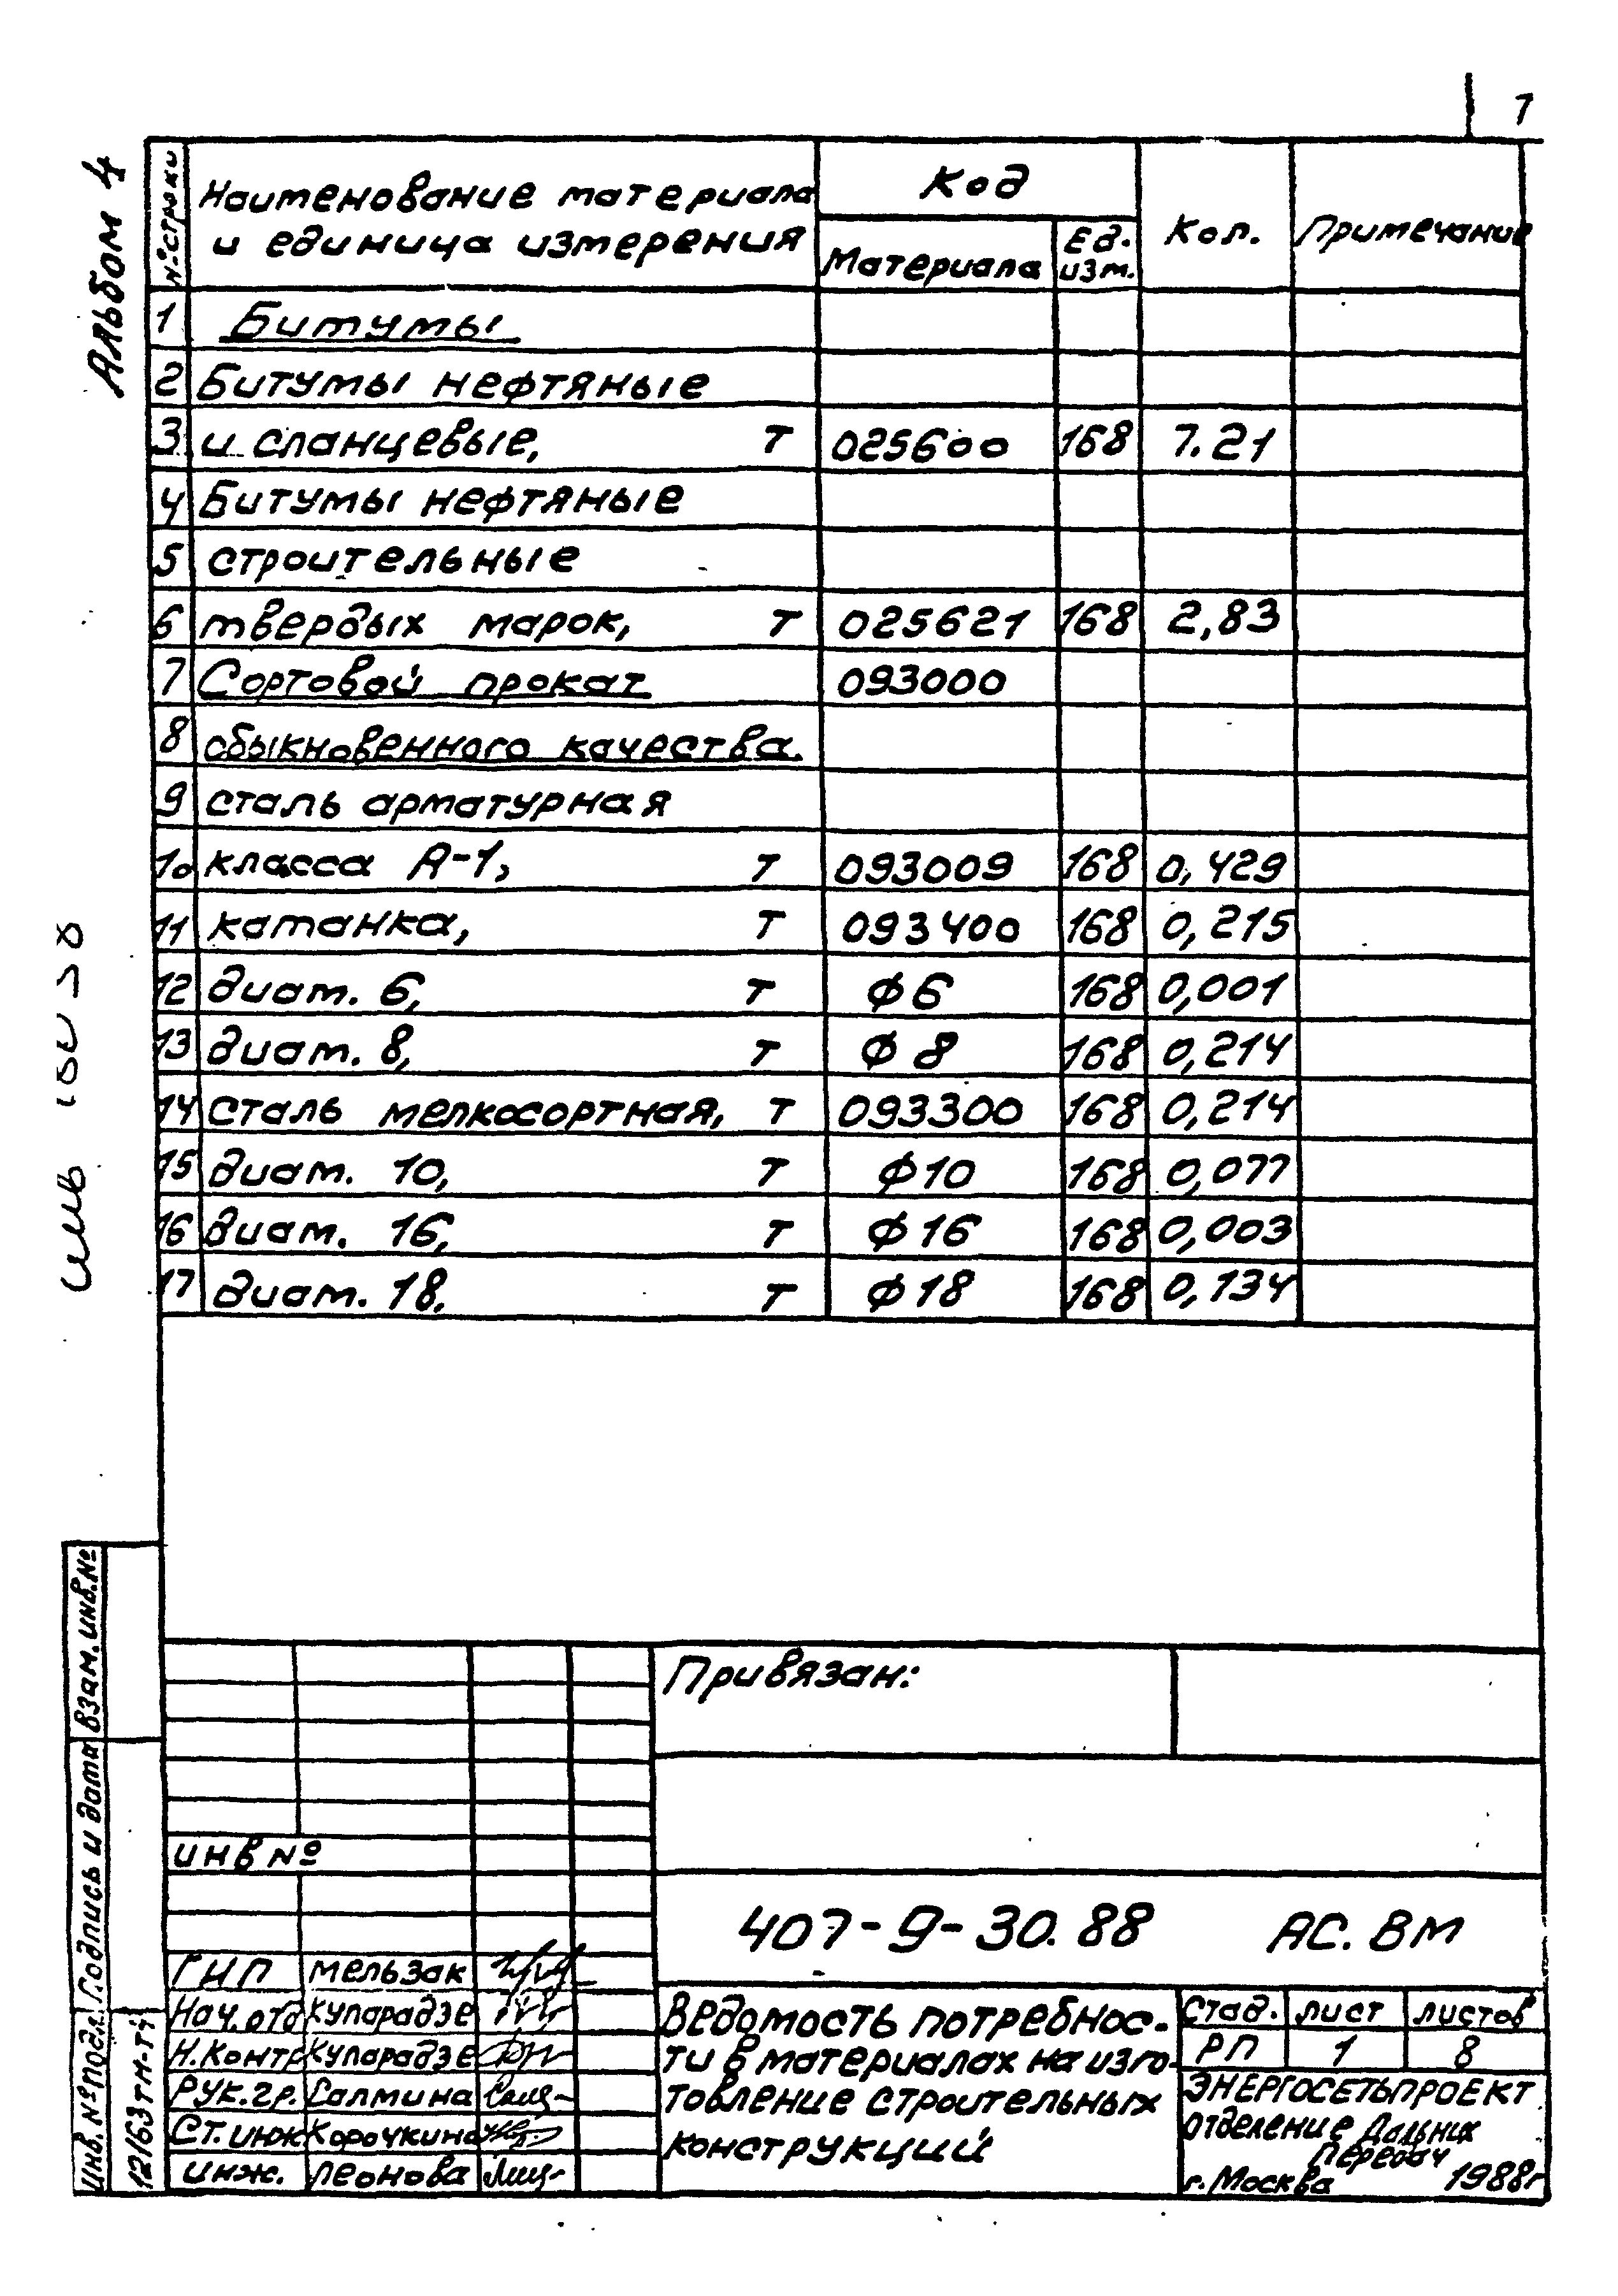 7
Альбом 4
№ строки
Наименование материала
и единица измерения
Код
Материала
Ед.
изм.
Кол.
Примечание
1 Битумы
2 Битумы нефтяные
3 и сланцевые, т 025600 168 7.21
4 Битумы нефтяные
5 строительные
6 твердых марок, т 025621 168 2,83
7 Сортовой прокат 093000
8 обыкновенного качества.
9 сталь арматурная
10 класса А-1, т 093009 168 0,429
11 катанка, т 093400 168 0,215
12 диам. 6, т ф 6 168 0,001
13 диам. 8, т ф 8 168 0,214
14 сталь мелкосортная, т 093300 168 0,214
15 диам. 10, т ф 10 168 0,077
16 диам. 16, т ф 16 168 0,003
17 диам. 18, т ф 18 168 0,134
Взам. инв. №
Подпись и дата
Инв. № подл.
12163тм-т4
Привязан:
инв №
407-9-30.88 АС. ВМ
ГИП мельзак
Нач. отд Купарадзе
Н. Контр Купарадзе
Рук. гр. Салмина
Ст. инж Корочкина
инж. Леонова
Ведомость потребнос-
ти в материалах на изго-
товление строительных
конструкций
Стад. лист листов
РП 1 8
ЭНЕРГОСЕТЬПРОЕКТ
отделение Дальних
Передач
г. Москва 1988г